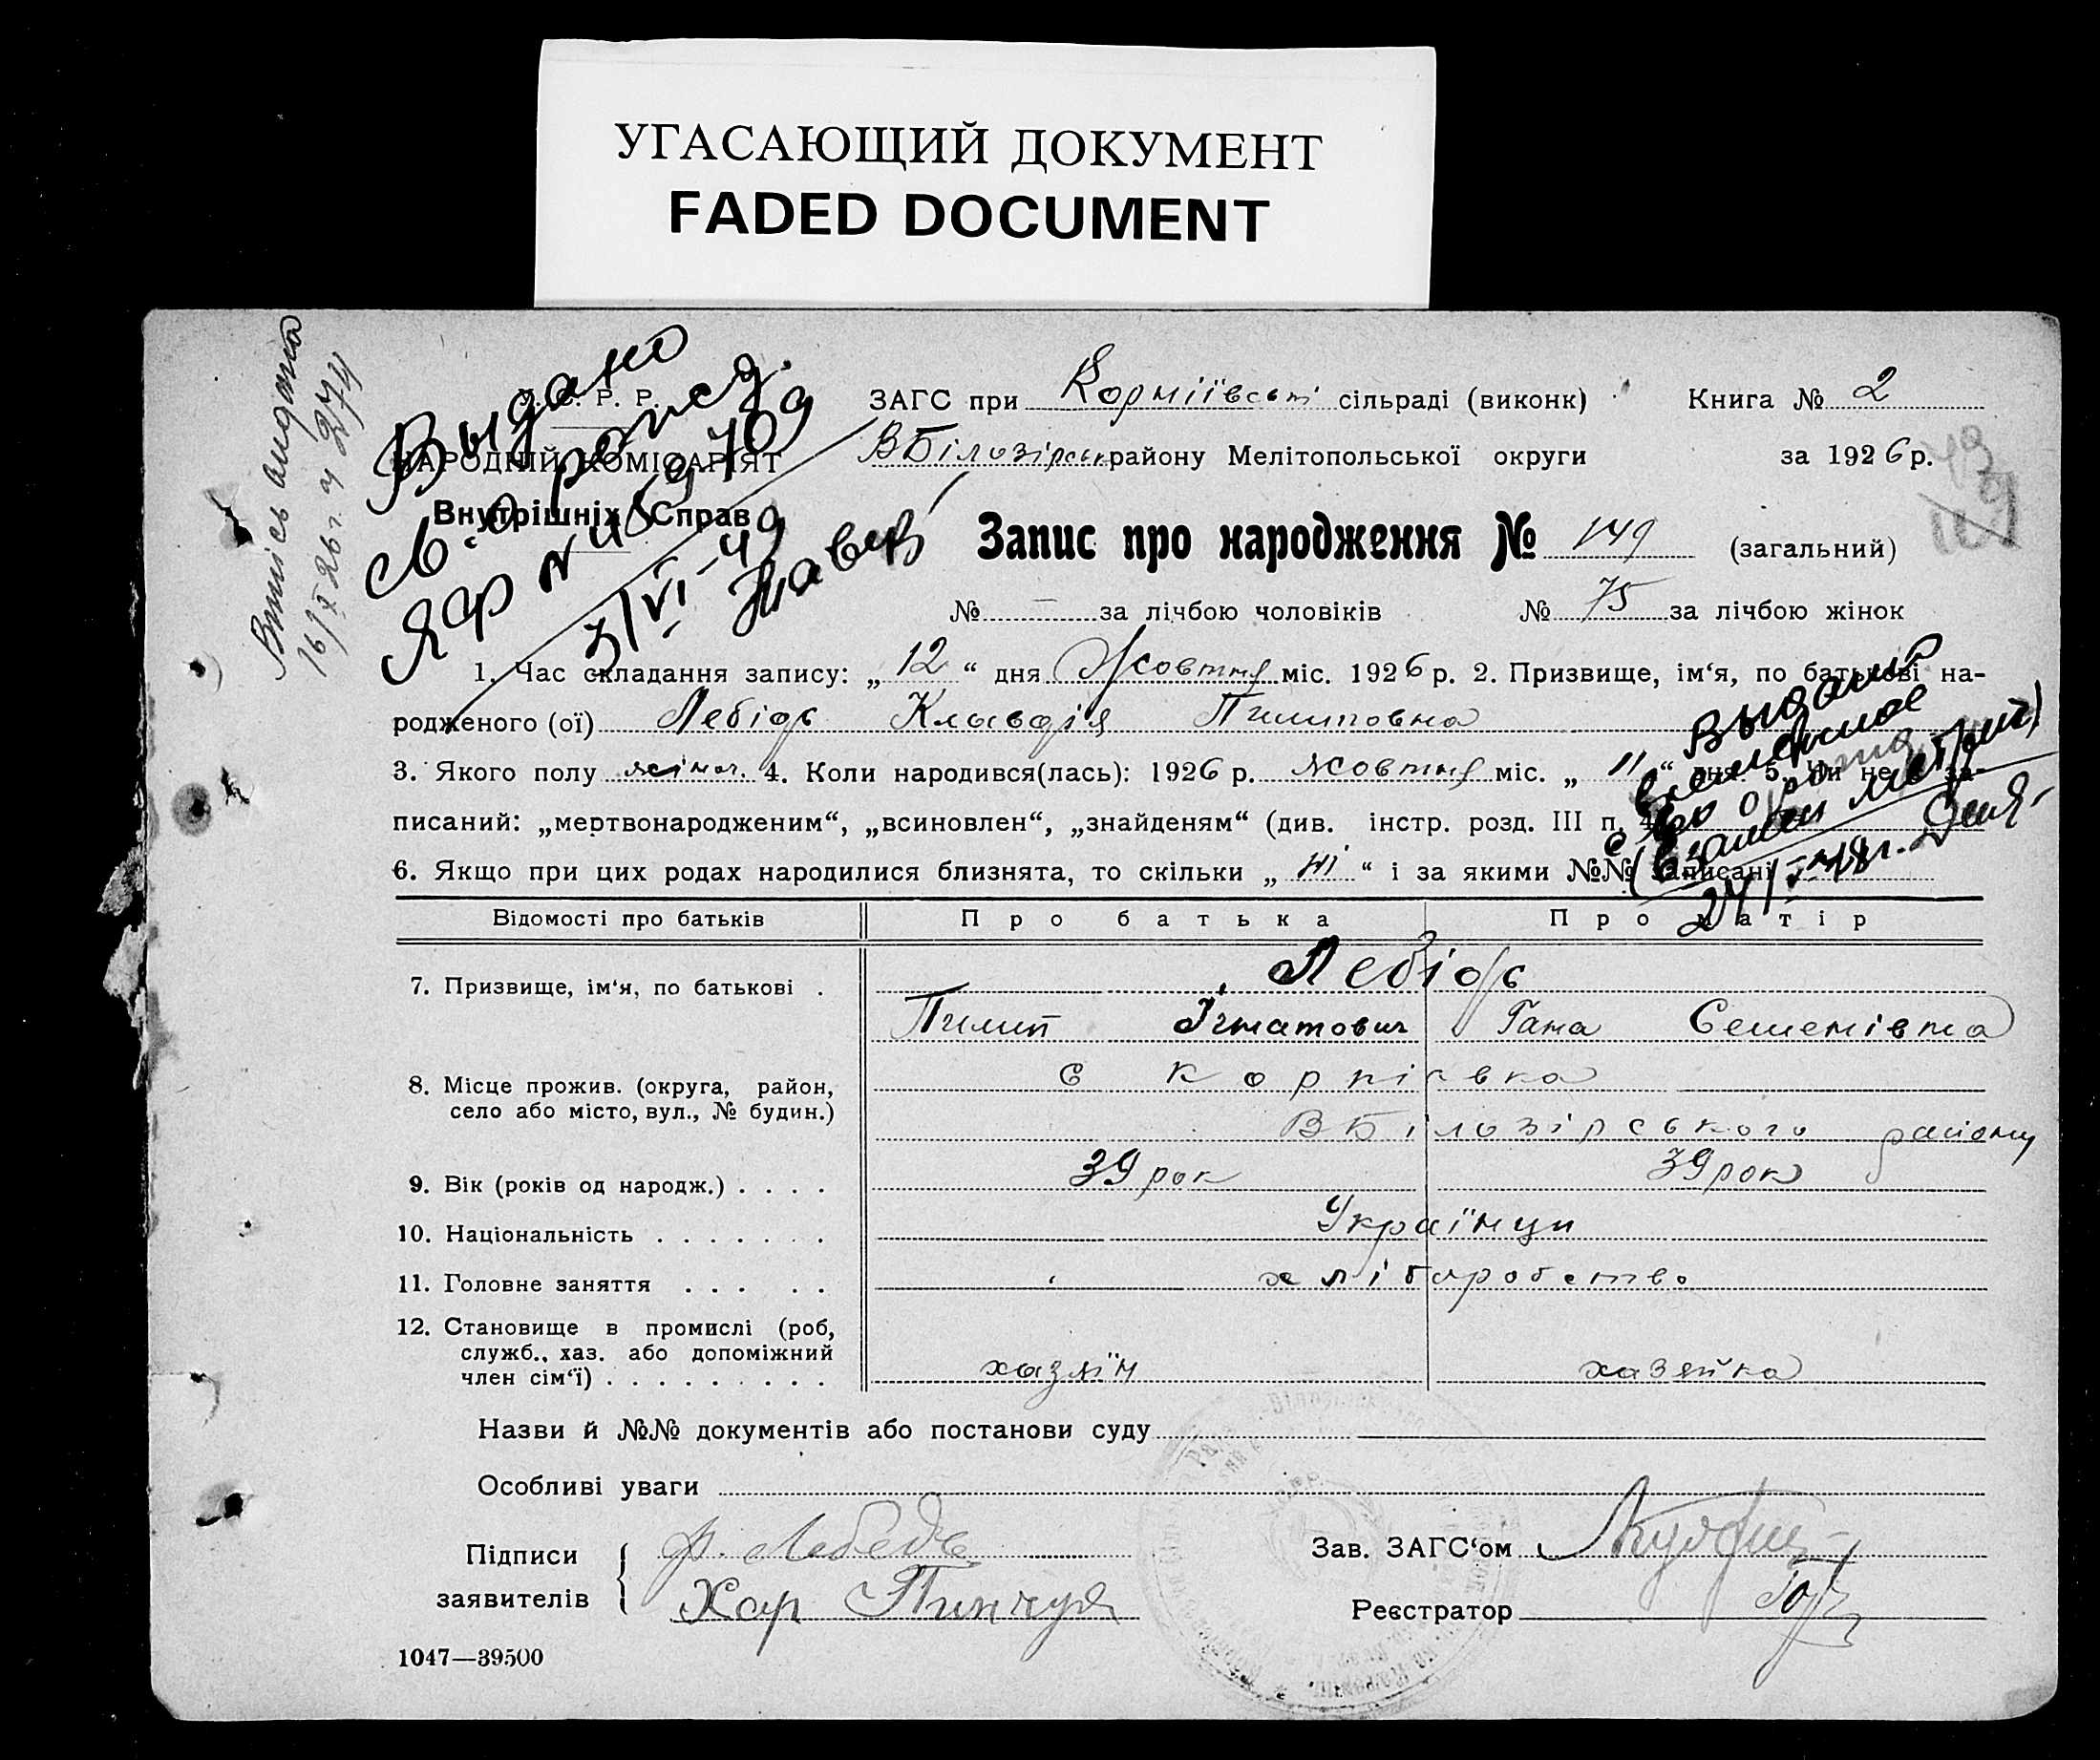 УГАСАЮЩИЙ ДОКУМЕНТ
FADED DOCUMENT
Випись видано
16/X 26 г. ч 274
Выдано
св. о рожд.
ЯФ № 459709
3/VI-49
У. С. Р. Р.
НАРОДНИЙ КОМІСАРІЯТ
Внутрішніх Справ
ЗАГС при Корніївські сільраді (виконк) Книга № 2
ВБілозірськ району Мелітопольської округи за 1926 р.
Запис про народження № 149 (загальний)
№ — за лічбою чоловіків № 75 за лічбою жінок
1. Час складання запису: „ 12 “ дня Жовтня міс. 1926 р. 2. Призвище, ім‘я, по батькові на-
родженого (ої) Лебідь Клавдія Пилиповна
3. Якого полу жіноч. 4. Коли народився(лась): 1926 р. жовтня міс. „ 11 “ дня. 5. Чи не за-
писаний: „мертвонародженим“, „всиновлен“, „знайденям“ (див. інстр. розд. III п. 4)
6. Якщо при цих родах народилися близнята, то скільки „ ні “ і за якими №№ записані
Выдано
(взамен метрик)
24/I-48 г.
Відомості про батьків Про батька Про матір
7. Призвище, ім‘я, по батькові . Лебідь
Пилип Ігнатович Гана Семенівна
8. Місце прожив. (округа, район, с Корніївка
село або місто, вул., № будин.) ВБілозірського району
9. Вік (років од народж.) . . . . 39 рок 39 рок
10. Національність . . . . . . . Українци
11. Головне заняття . . . . . хліборобство
12. Становище в промислі (роб,
служб., хаз. або допоміжний
член сім‘ї) . . . . . . . . . хазяїн хазяйка
Назви й №№ документів або постанови суду
Особливі уваги
Підписи Ф. Лебедь Зав. ЗАГС‘ом
заявителів Хар Пинчук Реєстратор
1047—39500